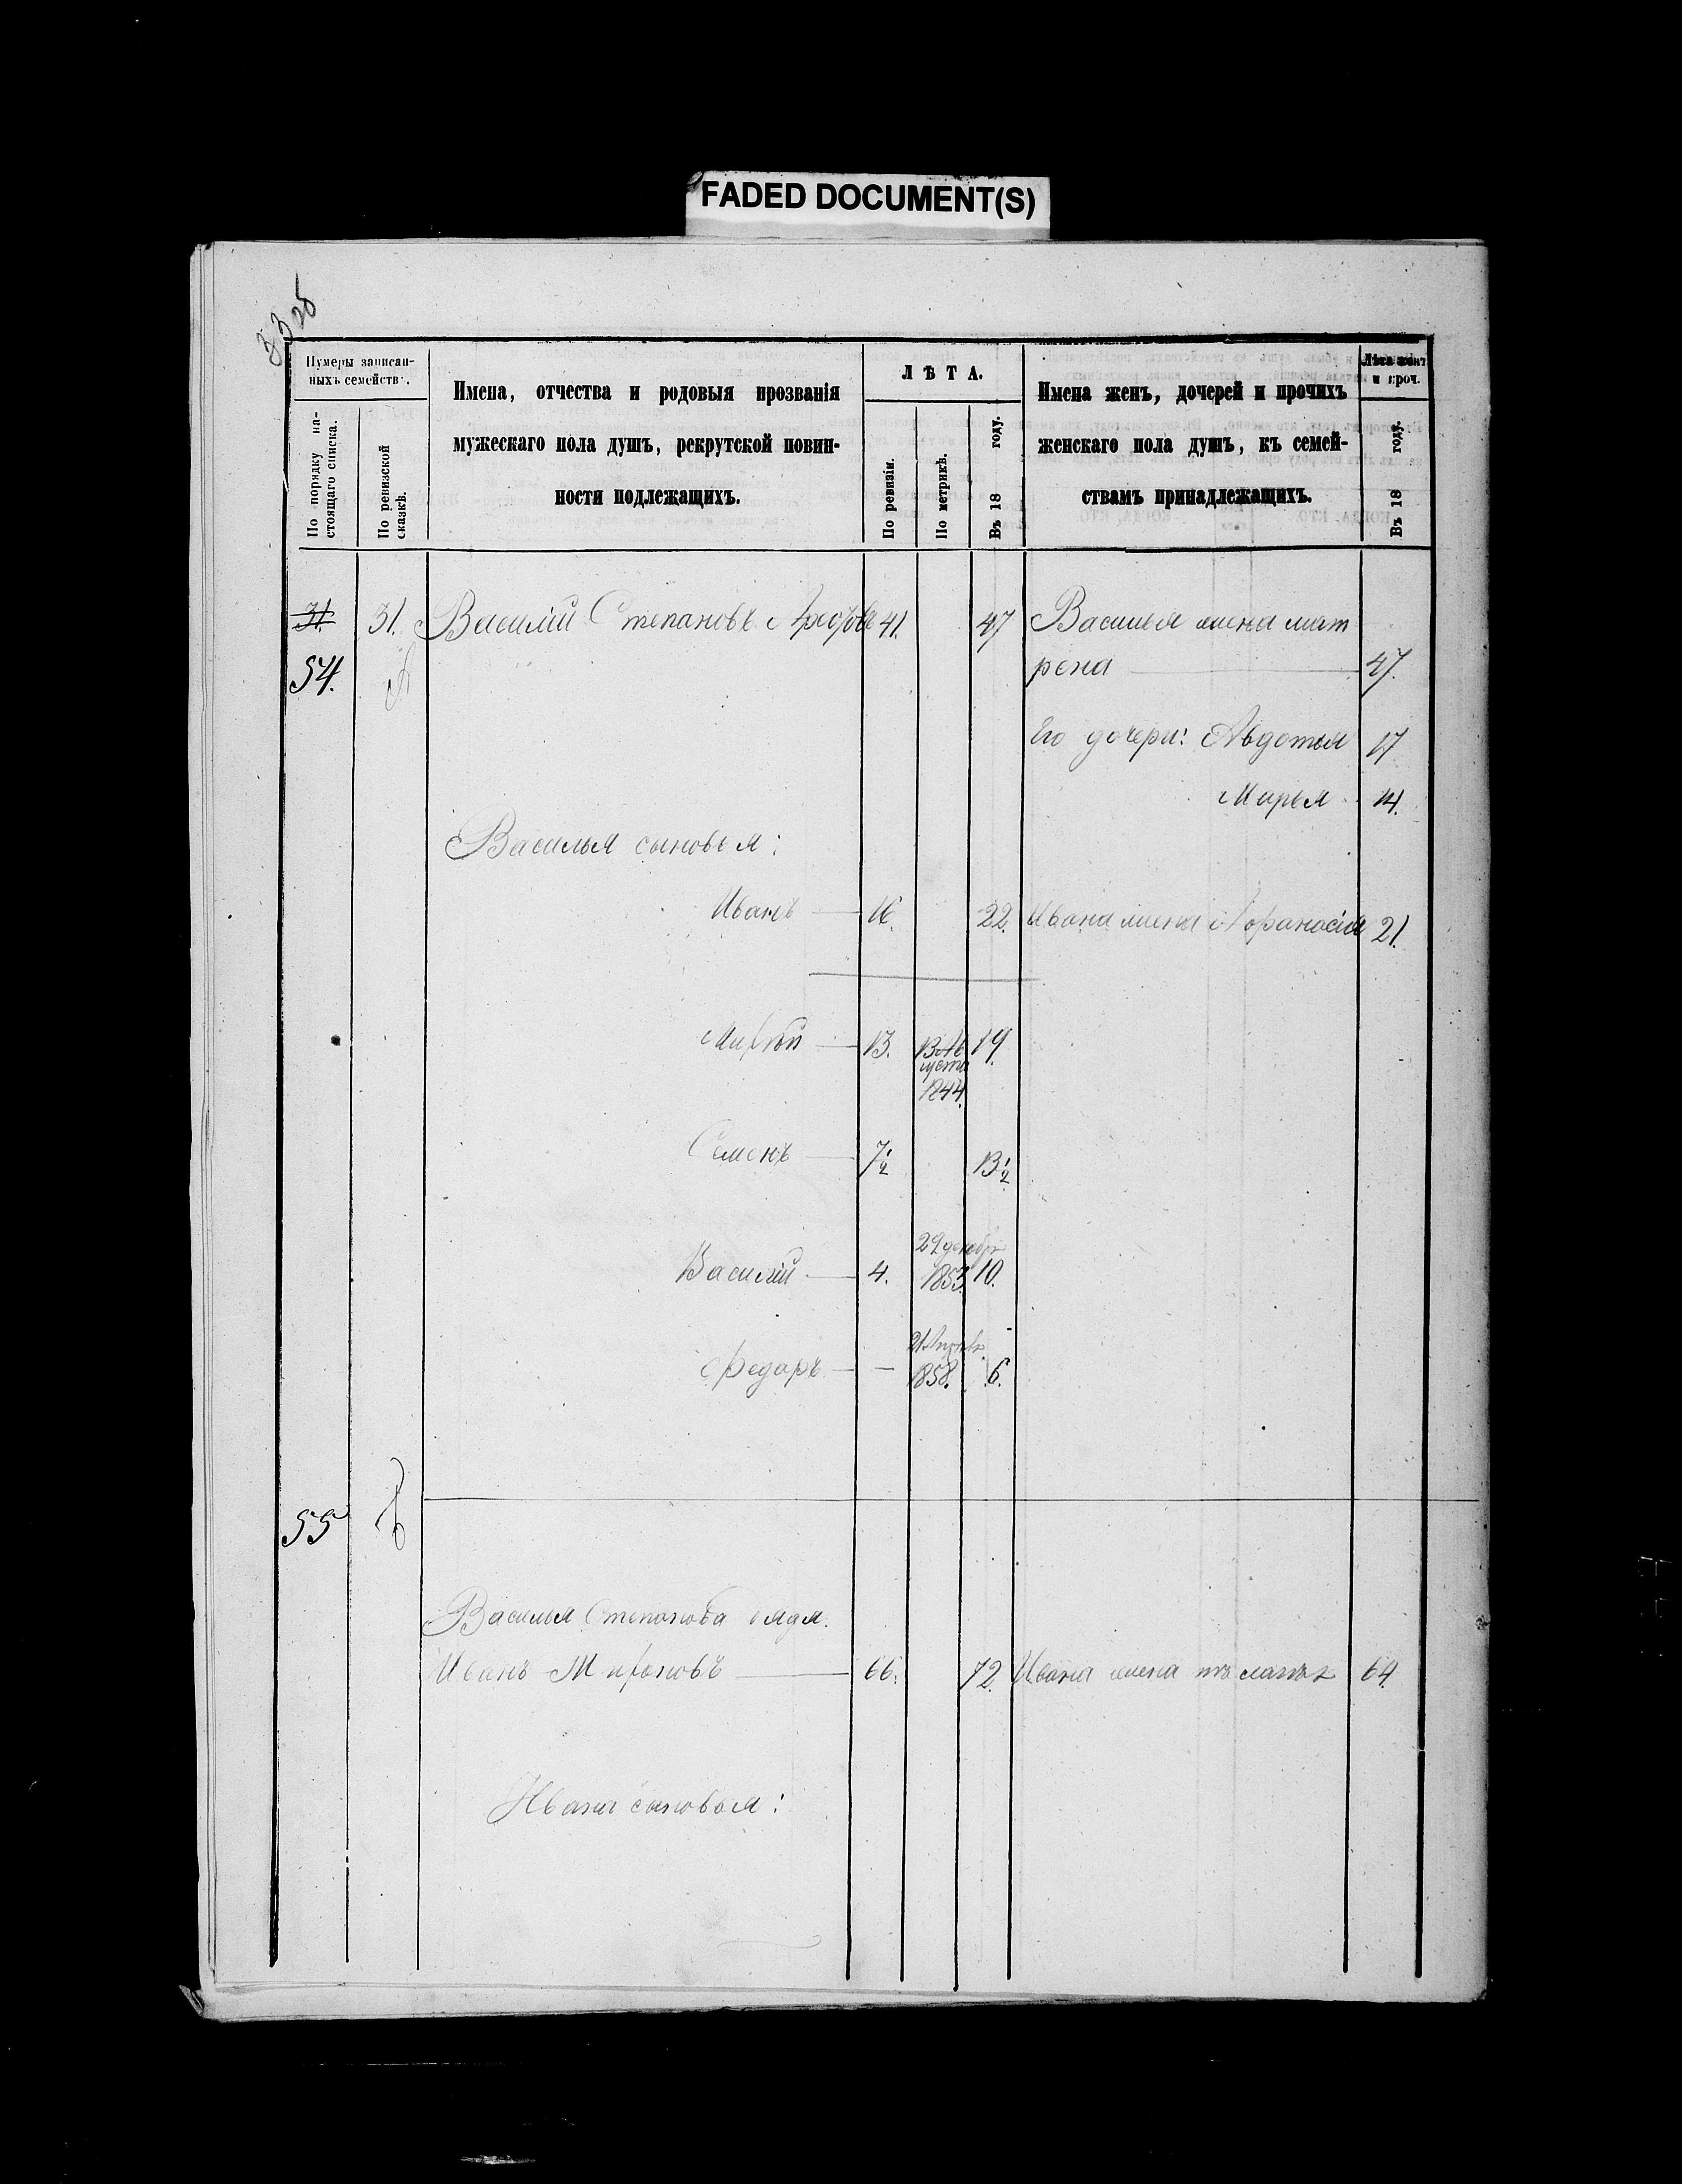 FADED DOCUMENT(S)
Нумеры записан-
ныхъ семействъ.
По порядку на-
стоящаго списка.
По ревизской
сказкѣ.
Имена, отчества и родовыя прозванія
мужескаго пола душъ, рекрутской повин-
ности подлежащихъ.
ЛѢТА.
По ревизіи.
По метрикѣ.
Въ 18 году.
Имена женъ, дочерей и прочихъ
женскаго пола душъ, къ семей-
ствамъ принадлежащихъ.
Лѣта женъ
и проч.
Въ 18 году.
31. 31. Василій Степановъ 41. 47 Василья жена мат
54. рена 47.
Его дочери: Авдотья 17
Марья 14.
Василья сыновья:
Иванъ 16. 22. Ивана жена Афанасія 21.
13. 13 Ав 19.
густа
1844.
Семенъ 7½ 13½
29 декабр
Василій 4. 1853. 10.
21
Федоръ — 1858. 6.
55
Василья Степанова дядя.
Иванъ Мироновъ 66. 72. Ивана жена 64.
Ивана сыновья: